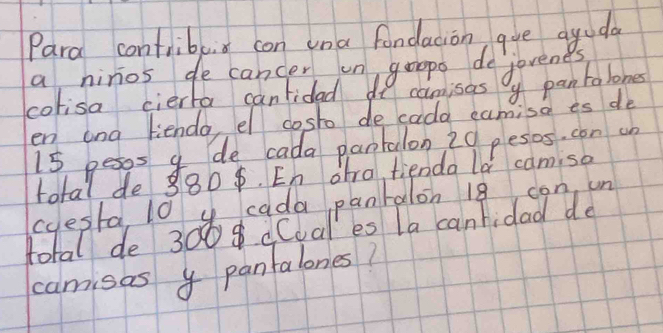 Para contribuir con una fundación que ayuda
a niños de cancer un grupo de jovenes
cotisa cierta cantidad de camisas y pantalones
en una tienda, el costo de cada camisa es de
15 pesos y de cada pantalon 20 pesos. con un
total de 380 $. En otra tienda la camisa
cuesta 10 y cada pantalón 18 con un
total de 300 $ ¿Cual es la cantidad de
camisas y pantalones?